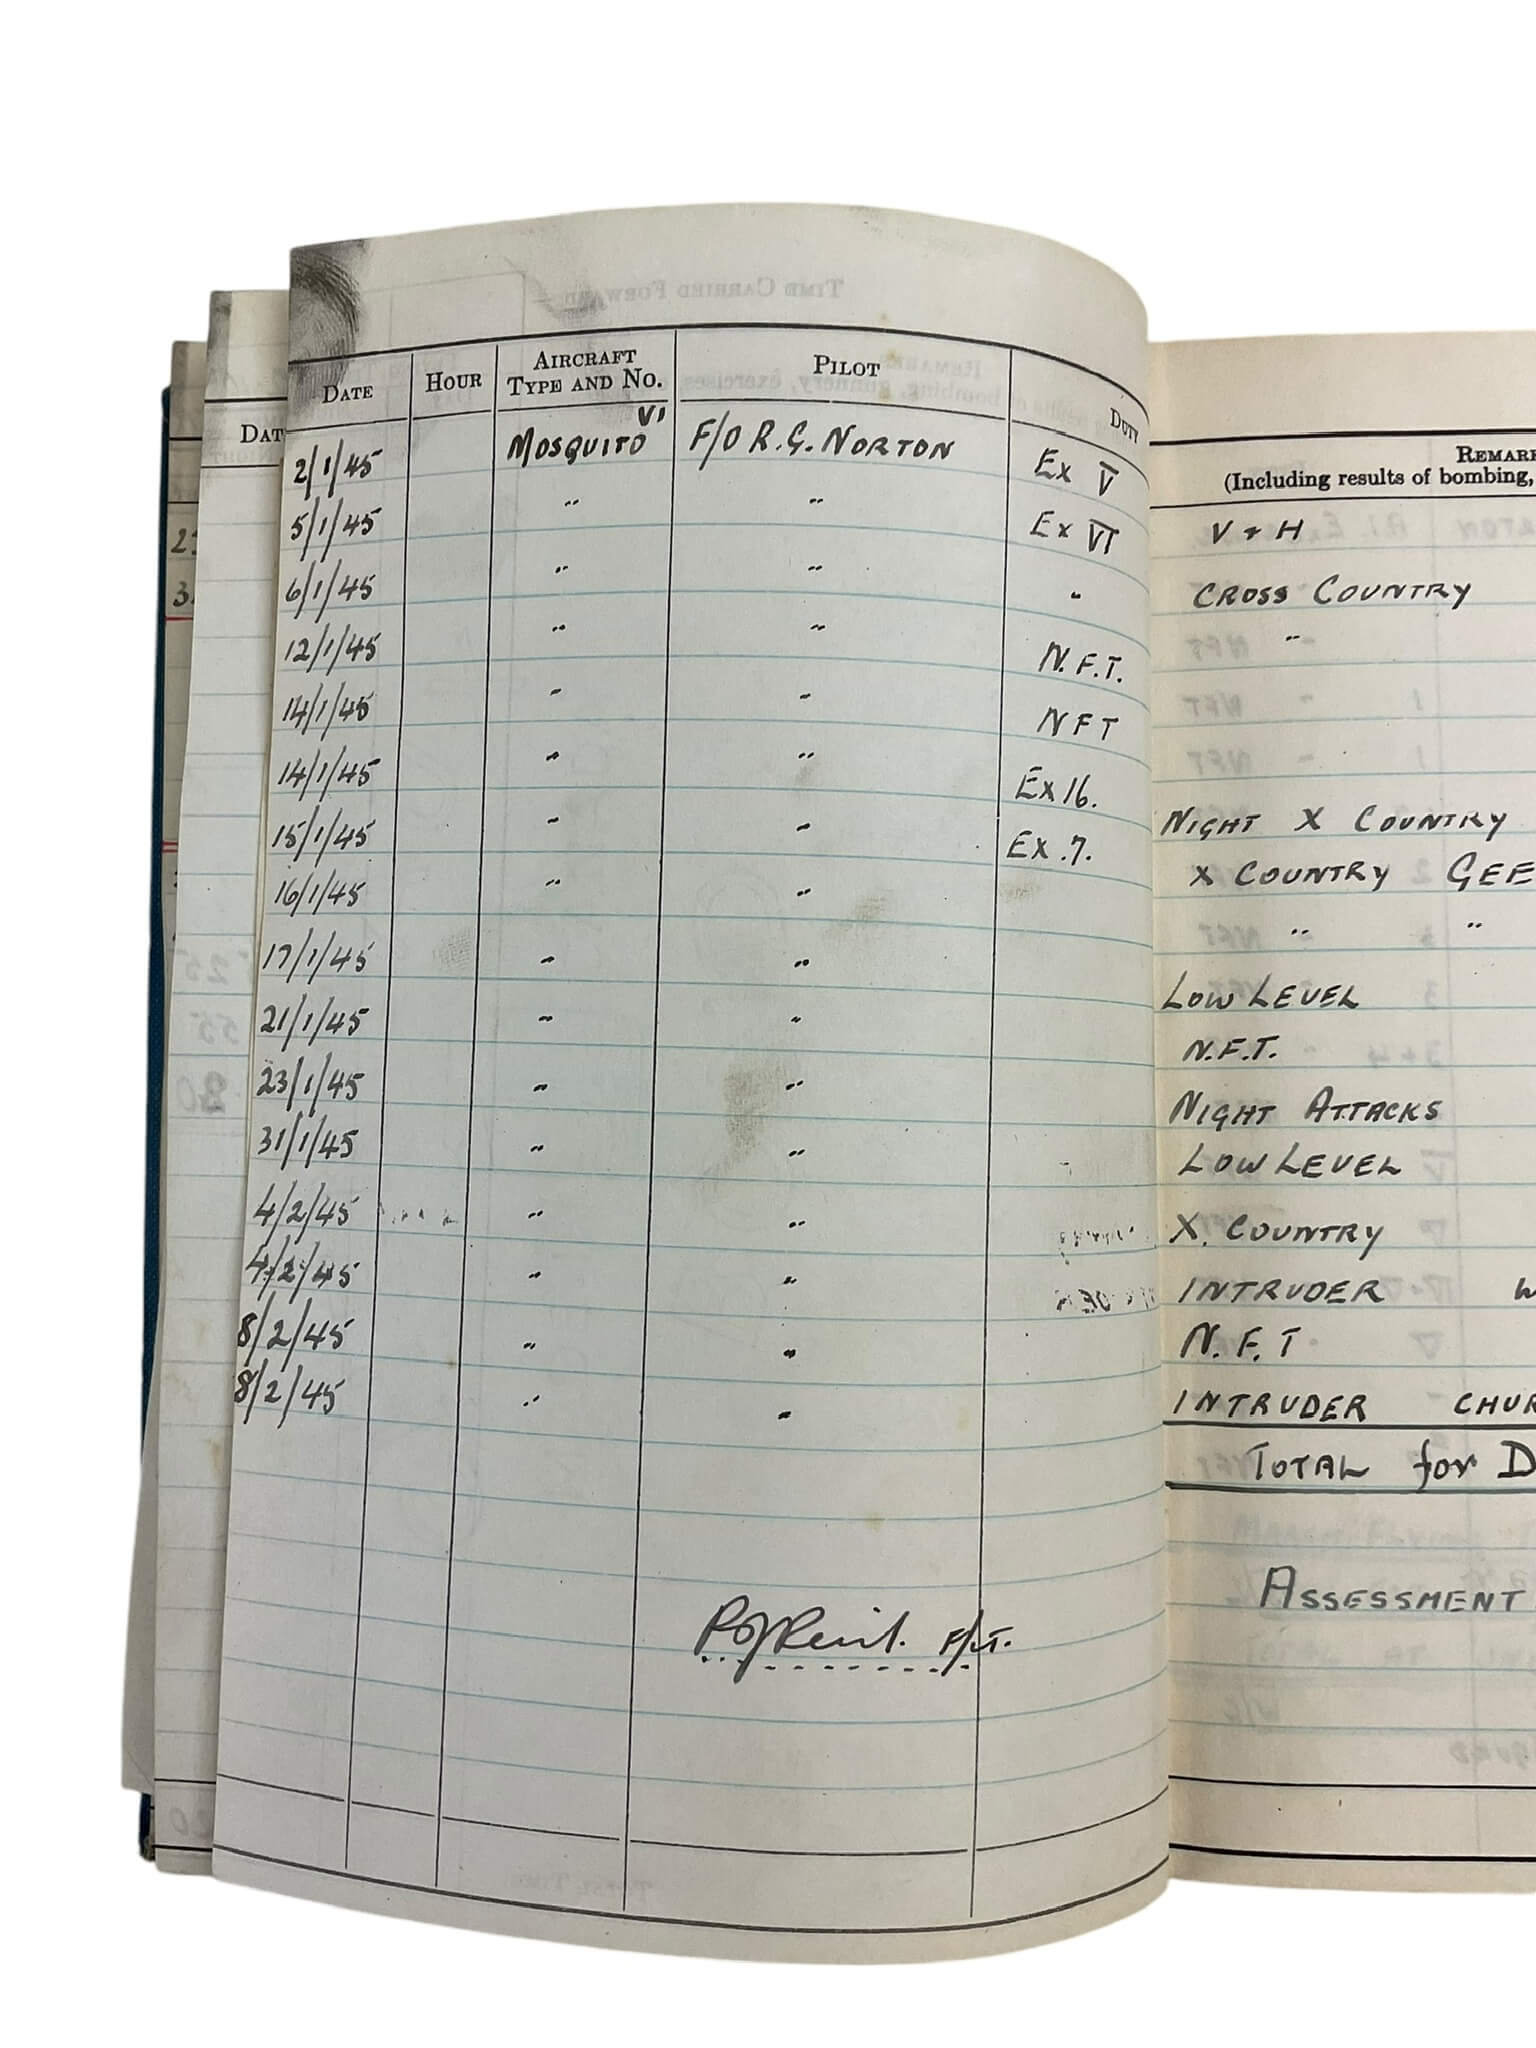 DATE HOUR AIRCRAFT TYPE AND NO. PILOT DUTY REMAR
(Including results of bombing,
2/1/45 MOSQUITO VI F/O R.G. NORTON Ex V V & H
5/1/45 " " Ex VI CROSS COUNTRY
6/1/45 " " " "
12/1/45 " " N.F.T.
14/1/45 " " NFT
14/1/45 " " Ex 16. NIGHT X COUNTRY
15/1/45 " " Ex.7. X COUNTRY GEE
16/1/45 " " " "
17/1/45 " " LOW LEVEL
21/1/45 " " N.F.T.
23/1/45 " " NIGHT ATTACKS
31/1/45 " " LOW LEVEL
4/2/45 " " X. COUNTRY
4/2/45 " " INTRUDER W
8/2/45 " " N.F.T
8/2/45 " " INTRUDER CHUR
TOTAL for D
ASSESSMENT
F/LT.